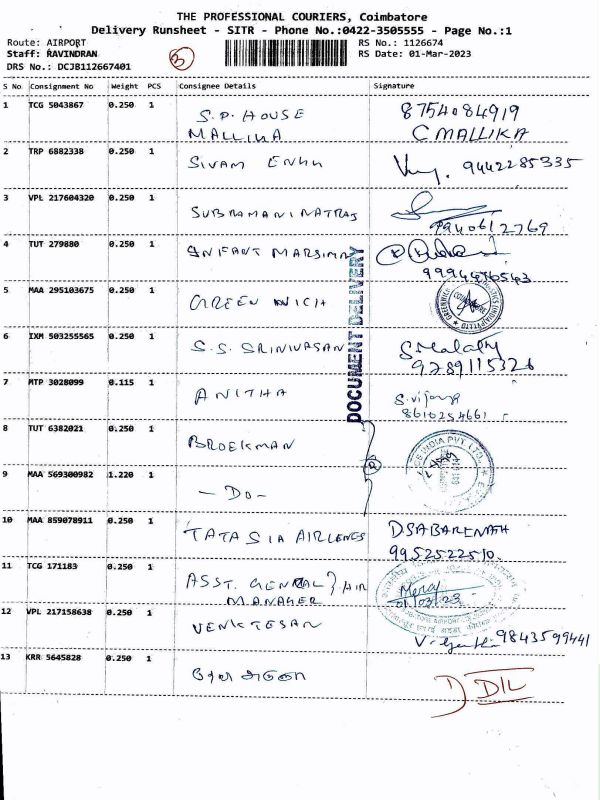 THE PROFESSIONAL COURIERS, Coimbatore
Delivery Runsheet - SITR - Phone No.:0422-3505555 - Page No.:1
Route: AIRPORT
RS No.: 1126674
Staff: RAVINDRAN
RS Date: 01-Mar-2023
DRS No.: DCJB112667401
S No Consignment No Weight PCS Consignee Details Signature
1 TCG 5043867 0.250 1 S.P. HOUSE 8754084919
MALLIKA C MALLIKA
2 TRP 6882338 0.250 1 SIVAM 9442285335
3 VPL 217604320 0.250 1 SUBRAMANI NATRAJ 9940612769
4 TUT 279880 0.250 1 INFANT
DOCUMENT DELIVERY
5 MAA 295103675 0.250 1 GREEN WICH
6 IXM 503255565 0.250 1 S.S. SRINIVASAN S Malathy
9789115326
7 MTP 3028099 0.115 1 ANITHA S. vijaya
8610254661
8 TUT 6382021 0.250 1 BROEKMAN
INDIA PVT. LTD.
9 MAA 569300982 1.220 1 - DO -
10 MAA 859078911 0.250 1 TATA SIA AIRLINES D SABARENATH
9952522510
11 TCG 171183 0.250 1 ASST. GENERAL } AIR
MANAGER 01/03/23
12 VPL 217158638 0.250 1 VENKTESAN 9843599441
13 KRR 5645828 0.250 1
D/L